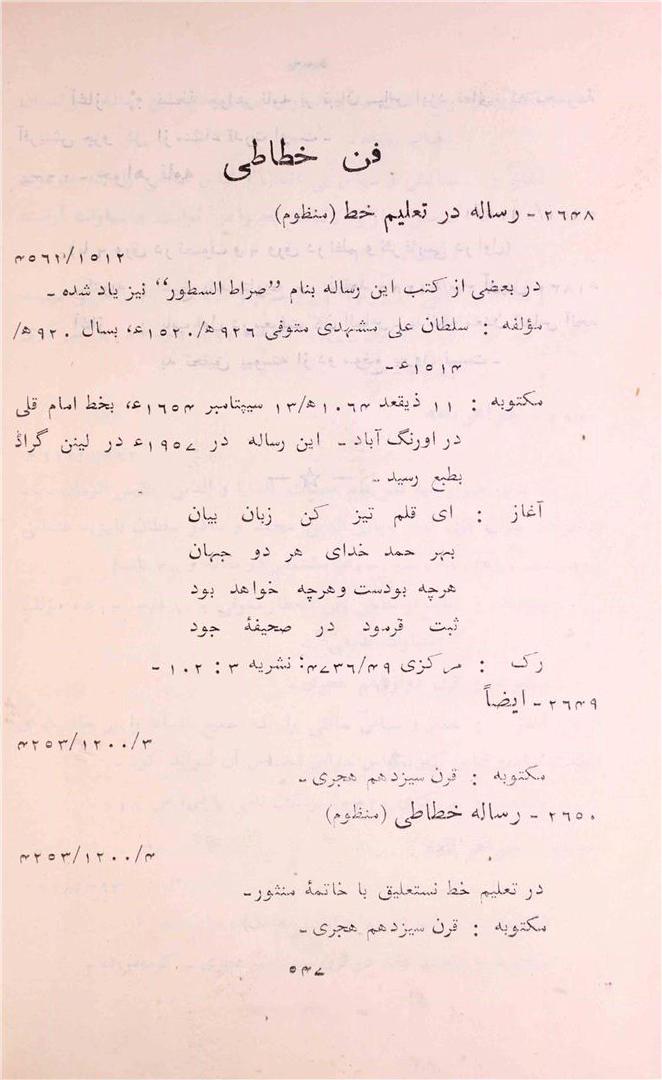 فن خطاطی
۲۶۴۸ - رساله در تعلیم خط (منظوم)
۴۵۶۱/۱۵۱۲
در بعضی از کتب این رساله بنام ”صراط السطور“ نیز یاد شده -
مؤلفه : سلطان علی مشهدی متوفی ۹۲۶ھ/۱۵۲۰ء، بسال ۹۲۰ھ/
۱۵۱۴ء -
مکتوبه : ۱۱ ذیقعد ۱۰۶۴ھ/۱۳ سیپتامبر ۱۶۵۴ء، بخط امام قلی
در اورنگ آباد - این رساله در ۱۹۵۷ء در لینن گراڈ
بطبع رسید -
آغاز : ای قلم تیز کن زبان بیان
بہر حمد خدای هر دو جہان
هرچه بودست وهرچه خواهد بود
ثبت قرمود در صحیفۀ جود
رک : مرکزی ۴۷۳۶/۴۹؛ نشریه ۳ : ۱۰۲ -
۲۶۴۹ - ایضاً
۴۲۵۳/۱۲۰۰/۳
مکتوبه : قرن سیزدهم هجری -
۲۶۵۰ - رساله خطاطی (منظوم)
۴۲۵۳/۱۲۰۰/۴
در تعلیم خط نستعلیق با خاتمۀ منثور -
مکتوبه : قرن سیزدهم هجری -
۵۴۷